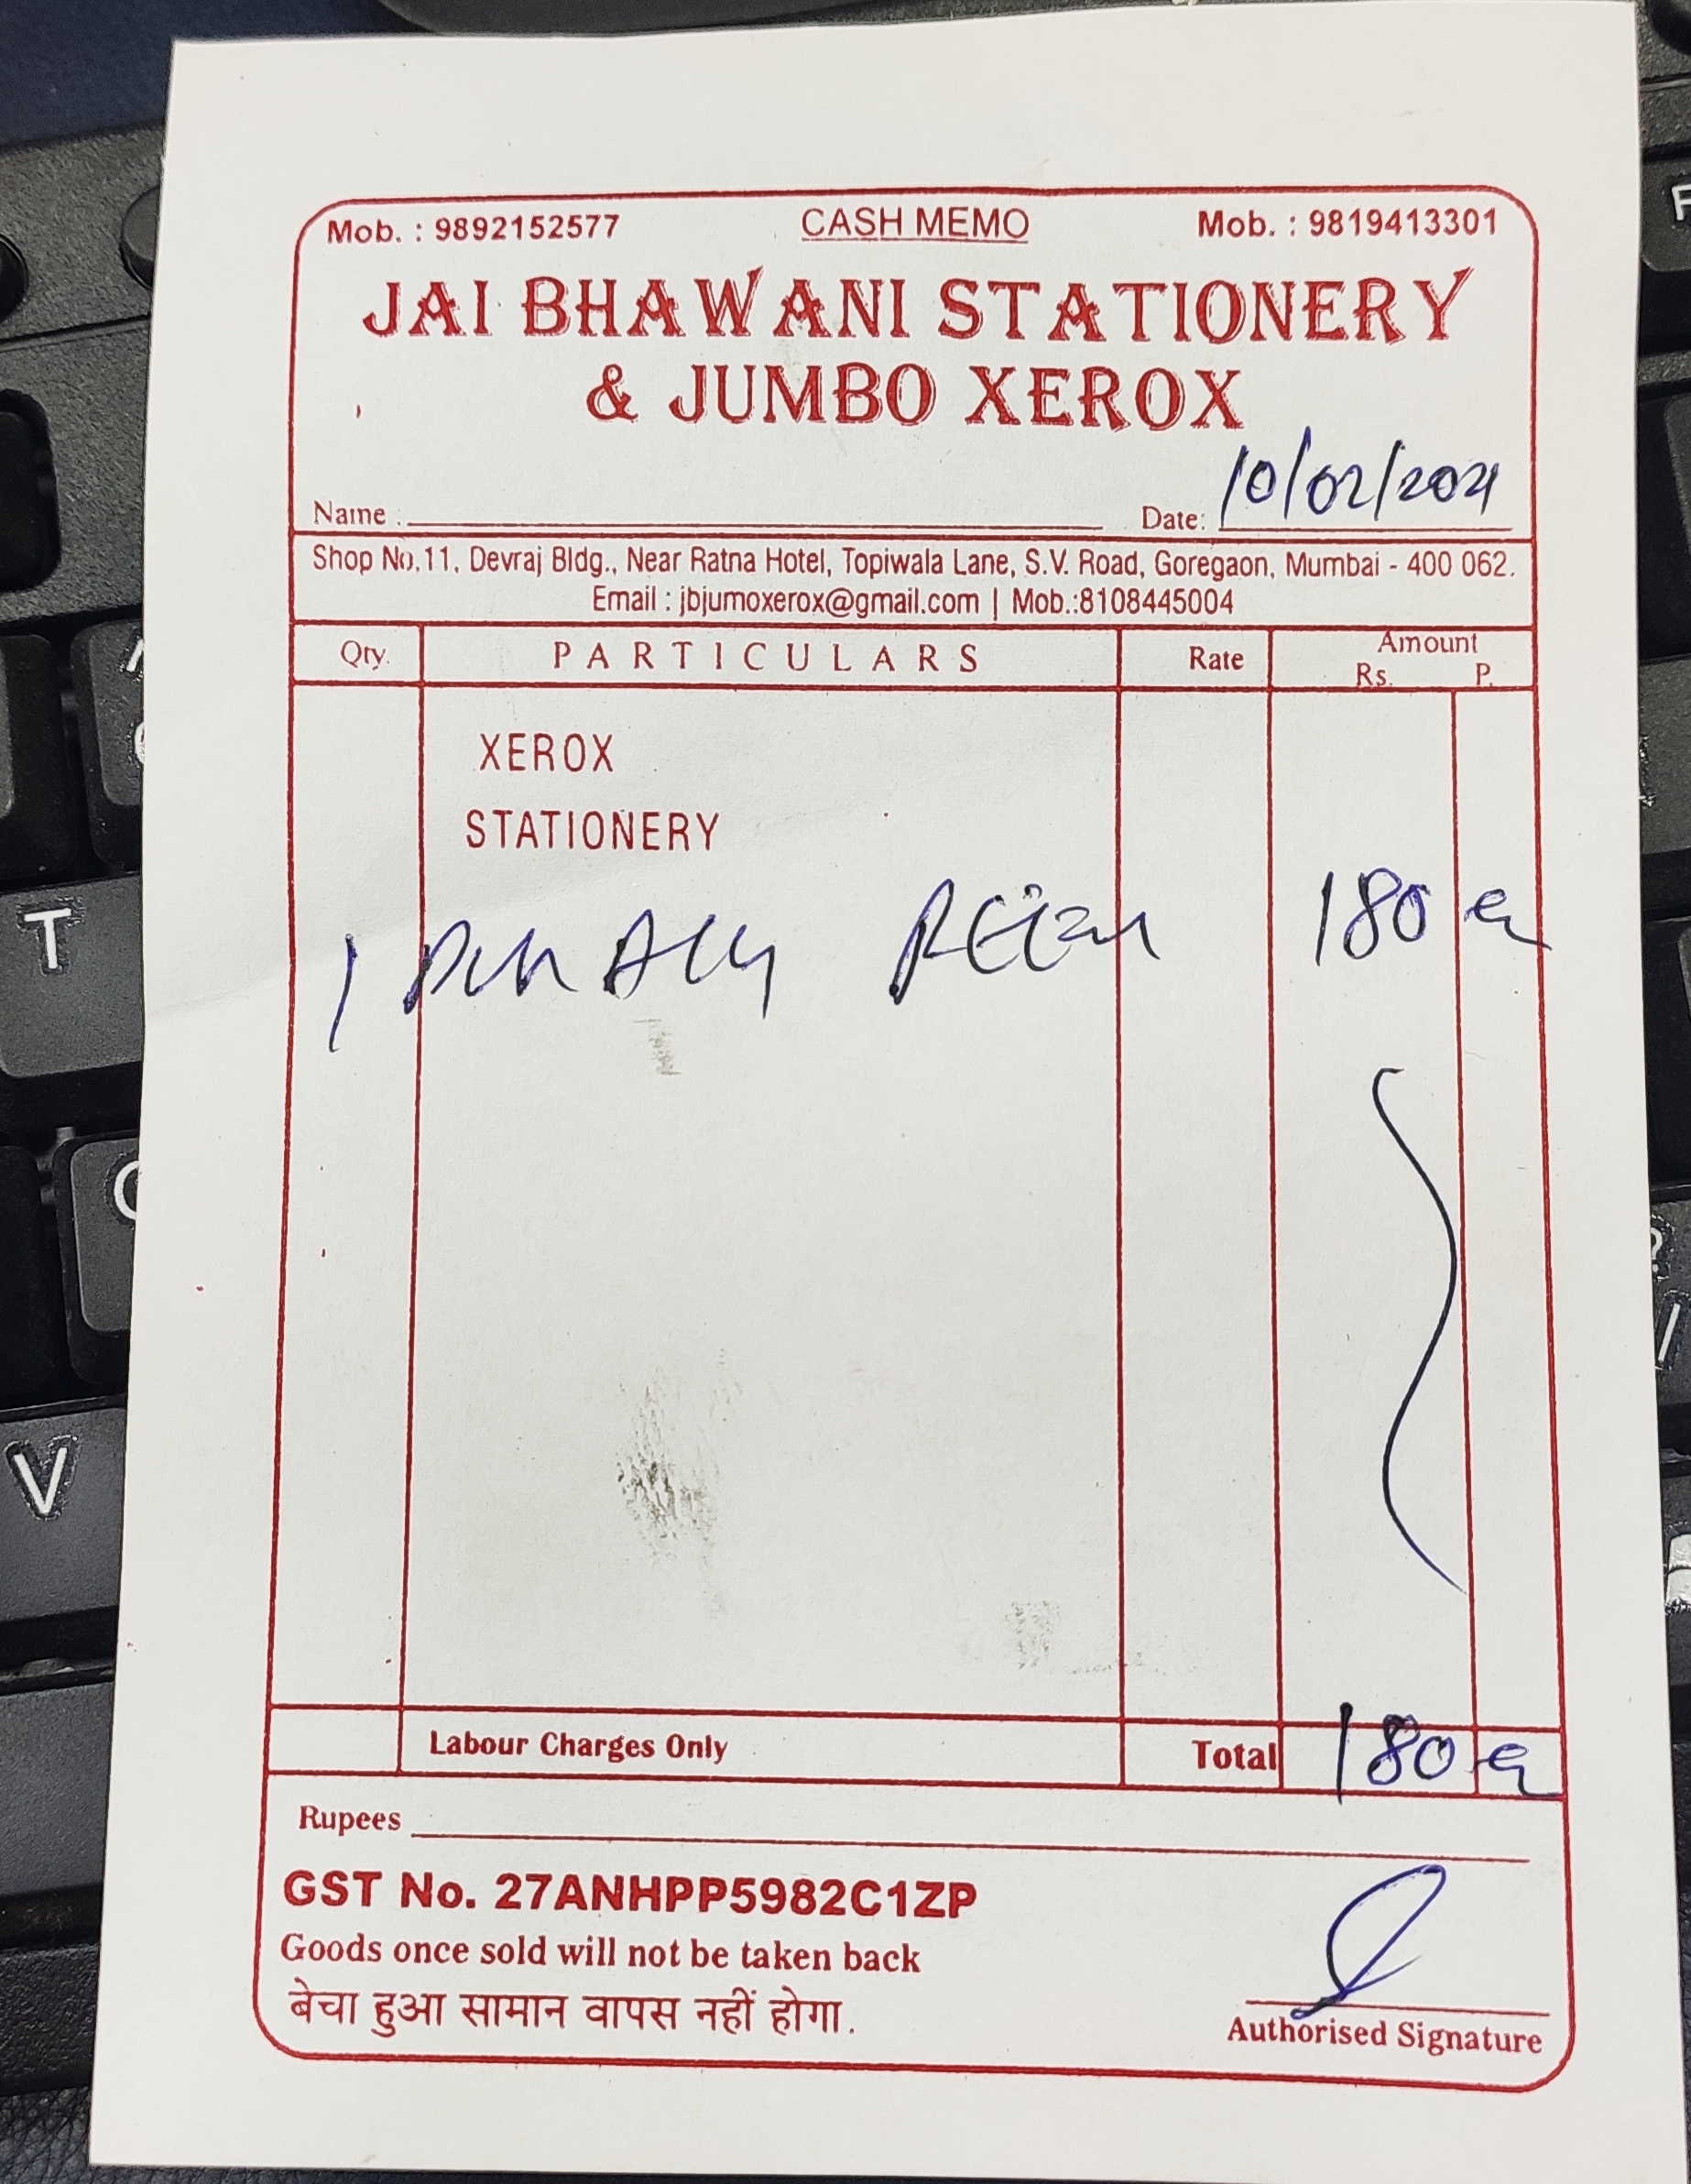 Mob. : 9892152577 CASH MEMO Mob. : 9819413301
JAI BHAWANI STATIONERY
& JUMBO XEROX
Name : Date: 10/02/2024
Shop No.11, Devraj Bldg., Near Ratna Hotel, Topiwala Lane, S.V. Road, Goregaon, Mumbai - 400 062.
Email : jbjumoxerox@gmail.com | Mob.:8108445004
Qty. PARTICULARS Rate Amount
Rs. P.
XEROX
STATIONERY
1 180
Labour Charges Only Total 180
Rupees
GST No. 27ANHPP5982C1ZP
Goods once sold will not be taken back
बेचा हुआ सामान वापस नहीं होगा.
Authorised Signature
T
V